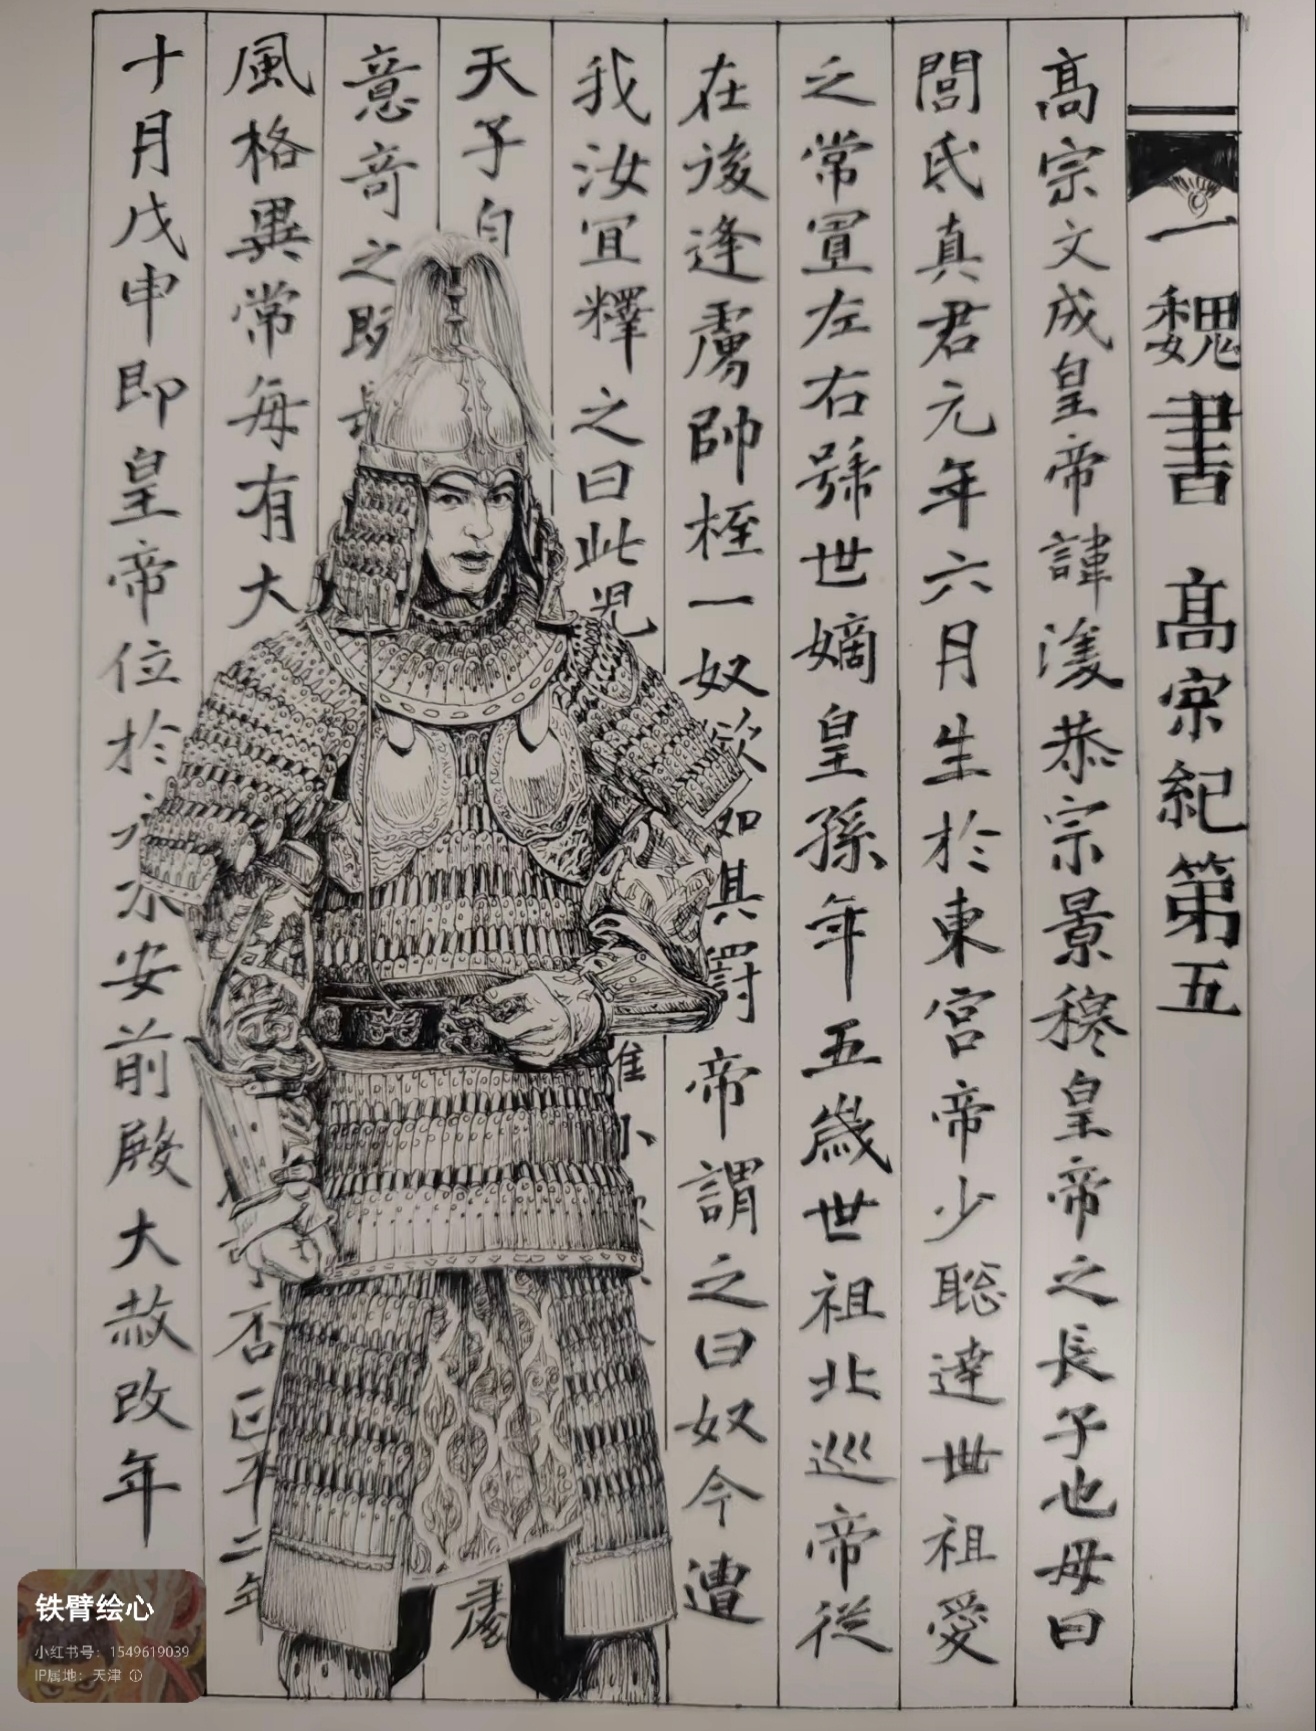 一魏書 高宗紀第五
高宗文成皇帝諱濬恭宗景穆皇帝之長子也母曰
閭氏真君元年六月生於東宮帝少聡達世祖愛
之常置左右號世嫡皇孫年五歲世祖北巡帝從
在後逢虜帥桎一奴欲加其罰帝謂之曰奴今遭
我汝宜釋之曰此児
天子自
意奇之既長
風格異常每有大否正平二年
十月戊申即皇帝位於永安前殿大赦改年
铁臂绘心
小红书号：1549619039
IP属地：天津